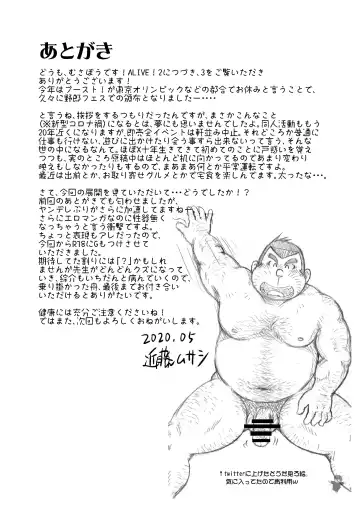 あとがき
どうも、むさぼうです！ALIVE！2につづき、3をご覧いただき
ありがとうございます！
今年はブースト！が東京オリンピックなどの都合でお休みと言うことで、
久々に野郎フェスでの頒布となりましたー・・・・
と言うね、挨拶をするつもりだったんですが、まさかこんなこと
（※新型コロナ禍）になるとは、夢にも思いませんでしたよ。同人活動ももう
20年近くになりますが、即売会イベントは軒並み中止。それどころか普通に
仕事も行けない、遊びに出かけたり会う事すら出来ないって言う、そんな
世の中になるなんて。ほぼ×十年生きてきて初めてのことに戸惑いを覚え
つつも、実のところ原稿中はほとんど机に向かってるのであまり変わり
映えもしなかったりもするので、まあまあ何とか平常運転ですよ。
最近は出前とか、お取り寄せグルメとかで宅食を楽しんでます。太ったな・・・。
さて、今回の展開を見ていただいて・・・どうでしたか！？
前回のあとがきでも匂わせましたが、
ヤンデレぶりがさらに加速してますねー
さらにエロマンガなのに性器無く
なっちゃうと言う衝撃ですよ。
ちょっと表現もアレだったので、
今回からR18にGもつけさせて
いただきました。
期待してた割りには「？」かもしれ
ませんが先生がどんどんクズになって
いき、綜介もいちだんと病んでいくので、
乗り掛かった舟、最後までお付き合い
いただけるとありがたいです。
健康には充分ご注意くださいね！
ではまた、次回もよろしくおねがいします。
2020.05
近藤ムサシ
↑twitterに上げたどうだ見ろ絵。
気に入ってたので再利用w